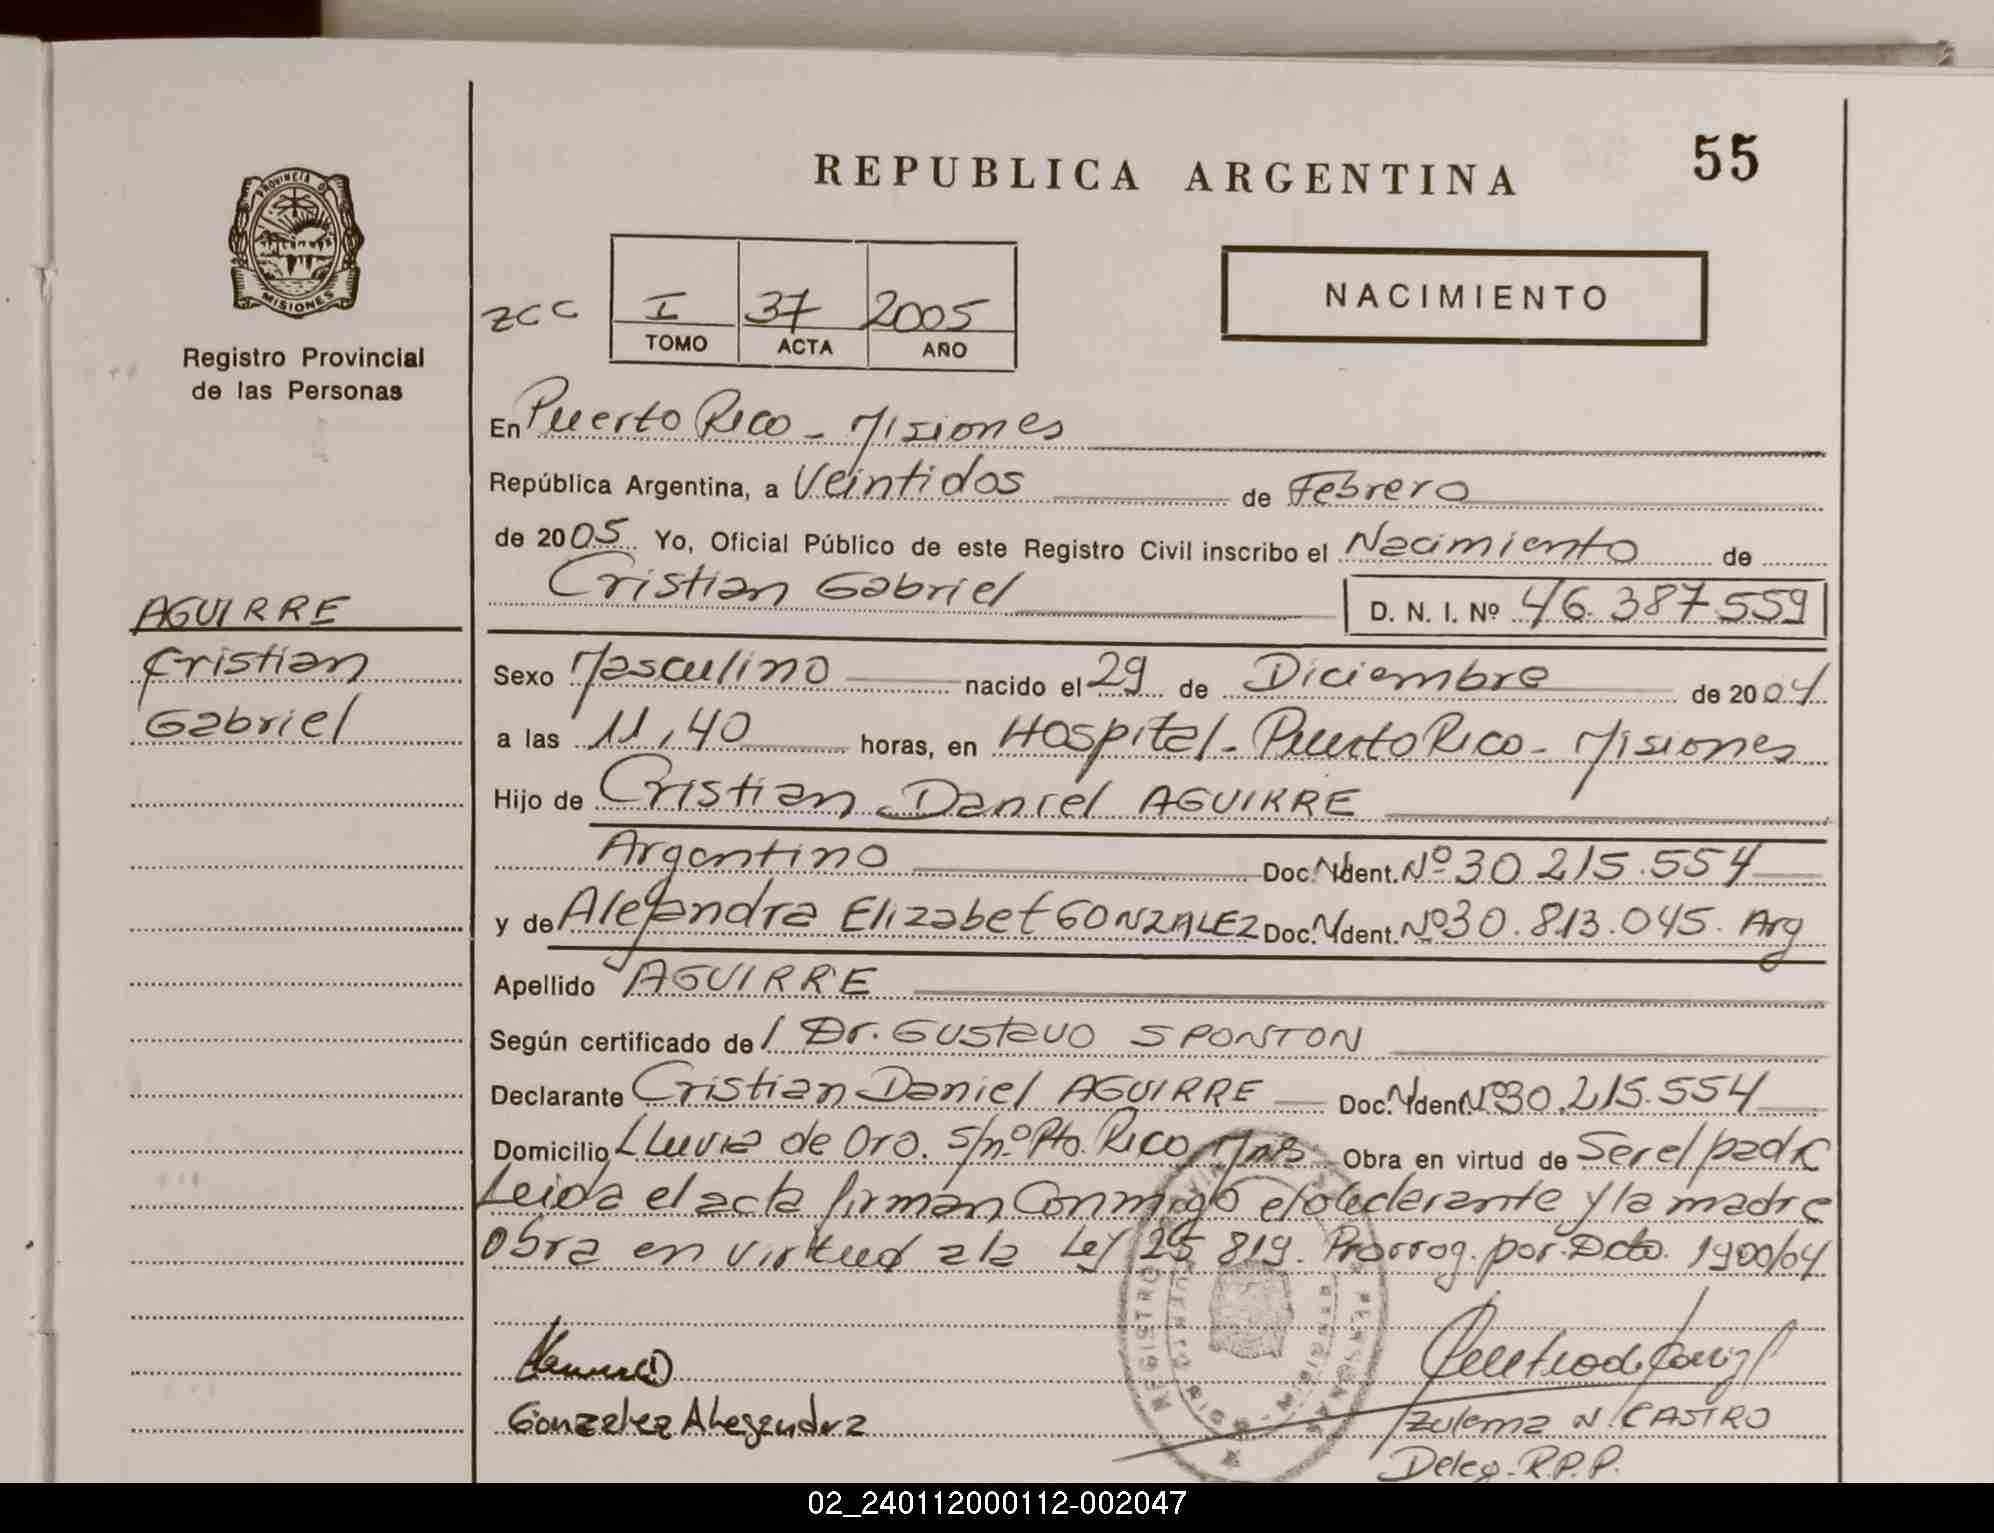 REPUBLICA ARGENTINA
55
PROVINCIA DE
MISIONES
Registro Provincial
de las Personas
ZCC
I 37 2005
TOMO ACTA AÑO
NACIMIENTO
En Puerto Rico - Misiones
República Argentina, a Veintidos de Febrero
de 2005 Yo, Oficial Público de este Registro Civil inscribo el Nacimiento de
Cristian Gabriel D. N. I. Nº 46.387.559
AGUIRRE
Cristian
Gabriel
Sexo Masculino nacido el 29 de Diciembre de 2004
a las 11,40 horas, en Hospital - Puerto Rico - Misiones
Hijo de Cristian Daniel AGUIRRE
Argentino Doc. Ident. Nº 30.215.554
y de Alejandra Elizabet GONZALEZ Doc. Ident. Nº 30.813.045. Arg
Apellido AGUIRRE
Según certificado de l Dr. Gustavo SPONTON
Declarante Cristian Daniel AGUIRRE Doc. Ident. Nº 30.215.554
Domicilio Lluvia de Oro. s/nº Pto. Rico Mnes Obra en virtud de Ser el padre
Leida el acta firman Conmigo el declarante y la madre
Obra en virtud a la Ley 25 819. Prorrog. por Dcto. 1900/04
Gonzalez Alejandra
Zulema N. CASTRO
Deleg. R.P.P.
REGISTRO PROVINCIAL DE LAS PERSONAS
02_240112000112-002047